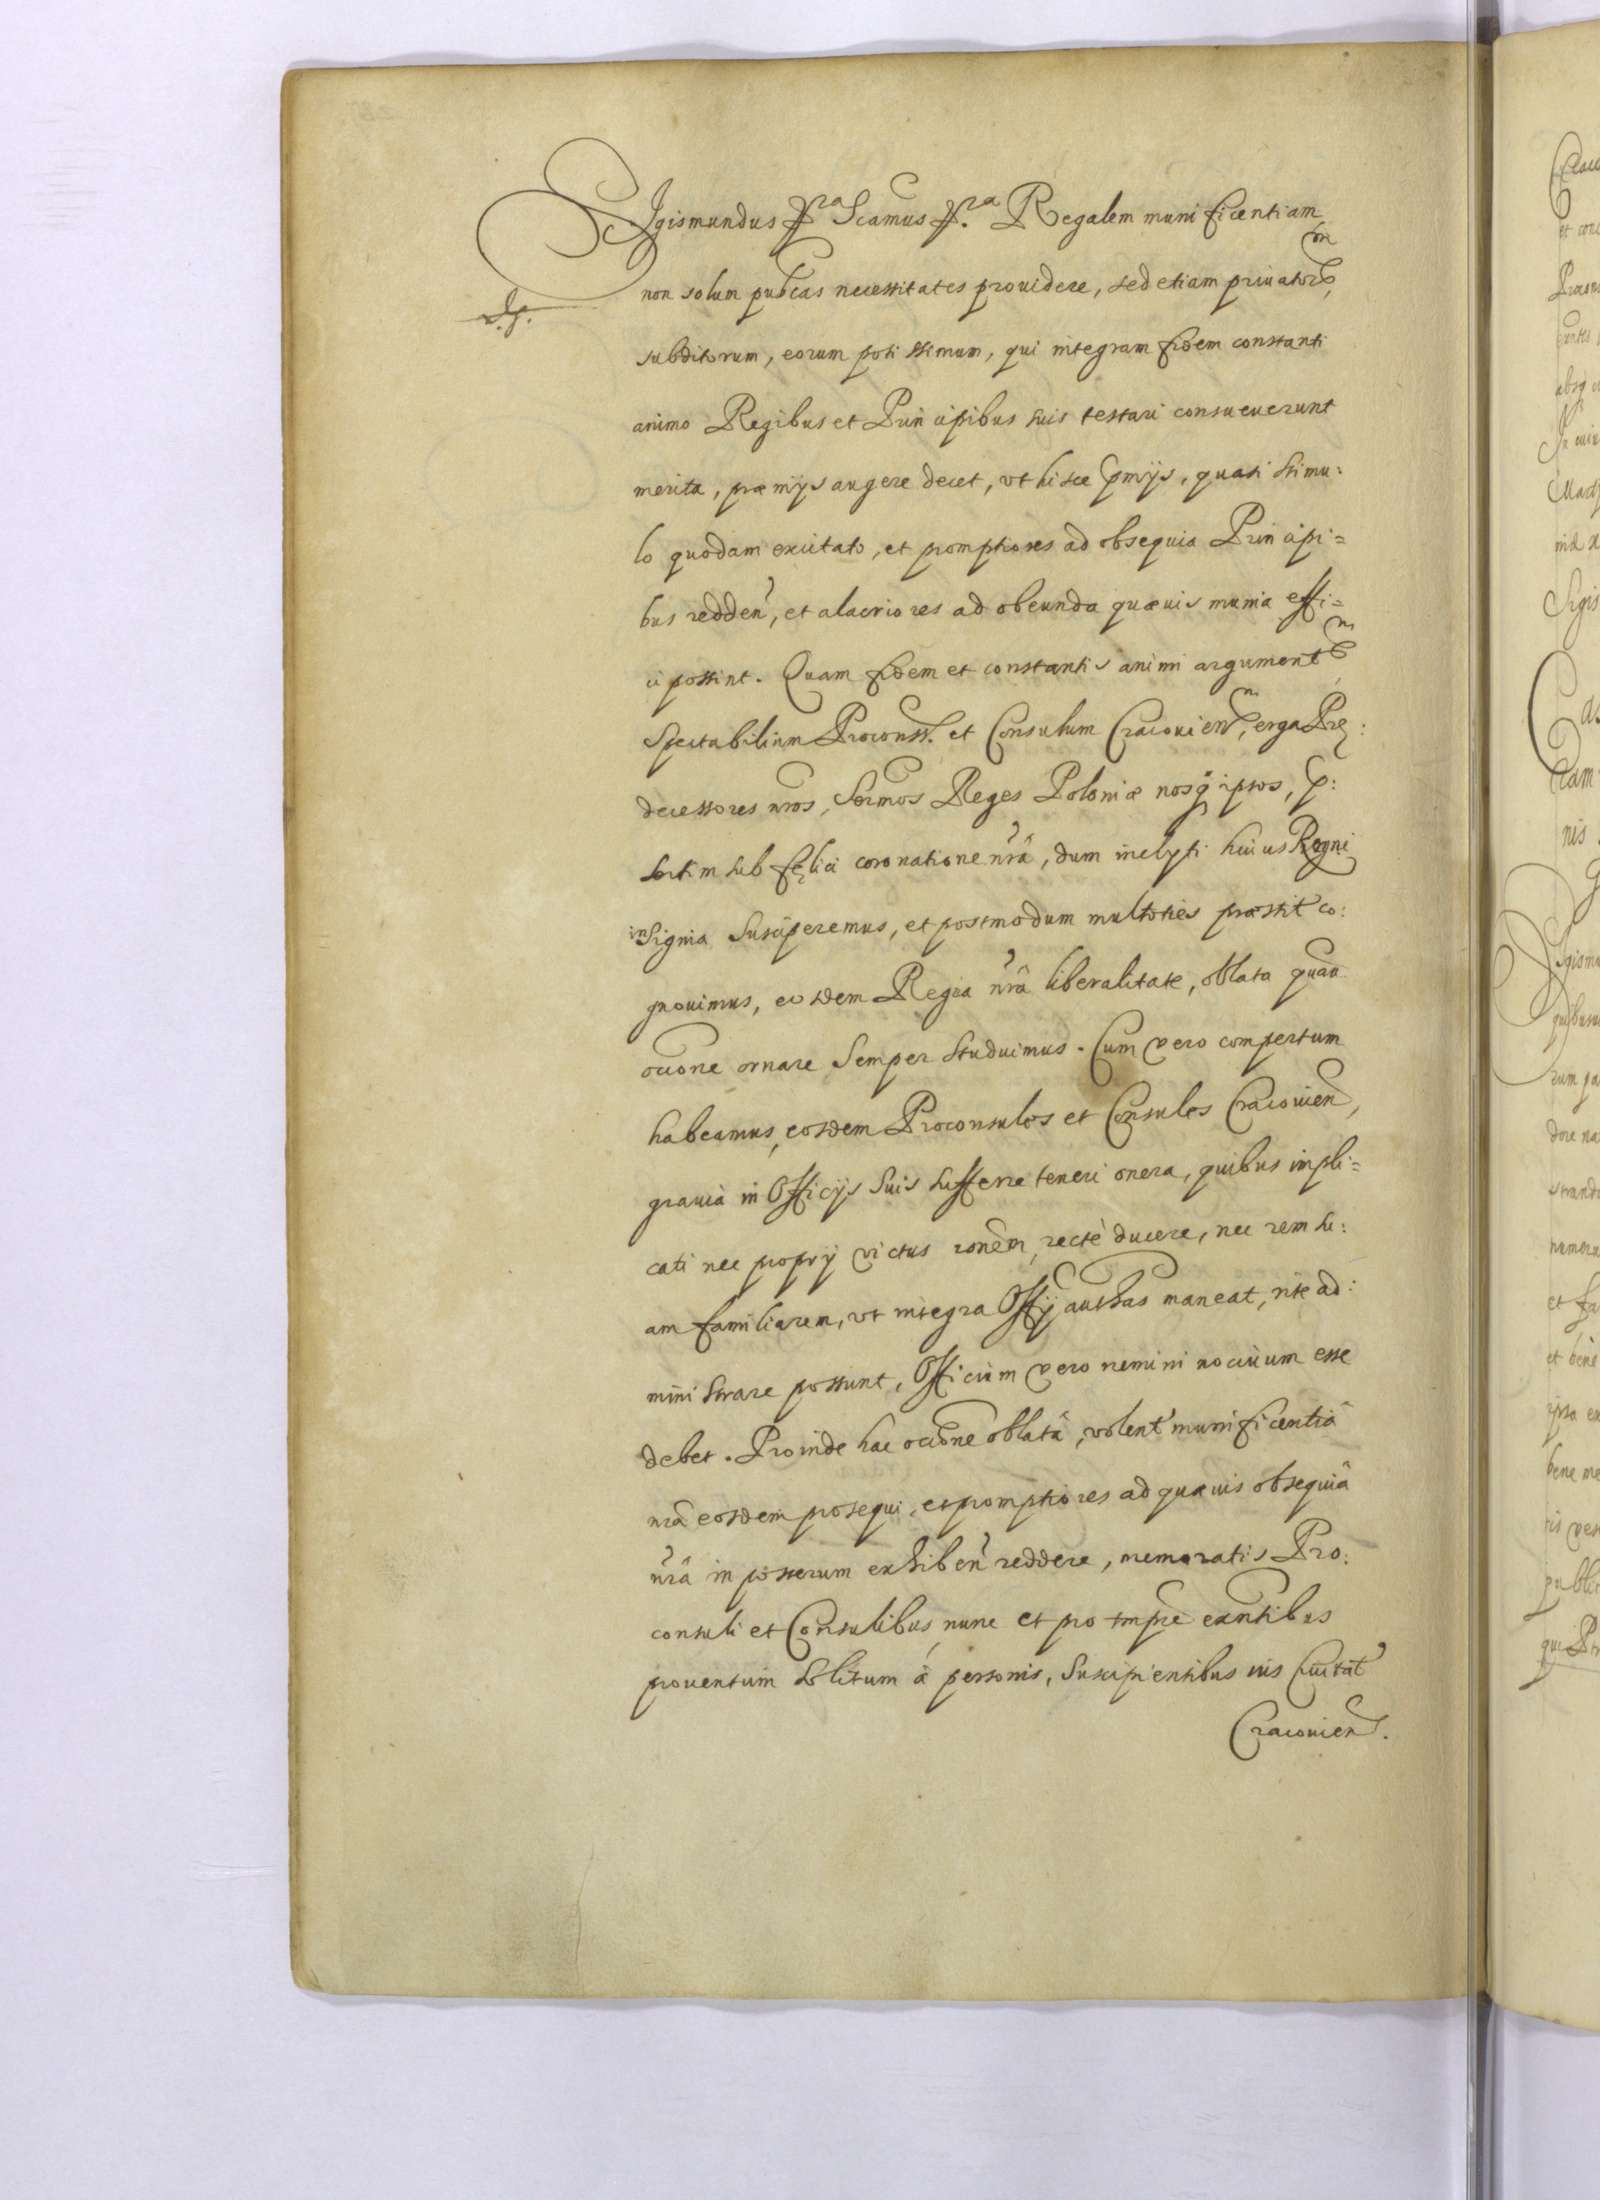 SIgismundus p.ra Scamus p.ra Regalem munificentiam
non solum pubcas necessitates prouidere, sed etiam priuatorum,
subditorum, eorum potissimum, qui integram fidem constanti
animo Regibus et Principibus suis testari consueuerunt
merita, præmijs augere decet, vt hisce pmijs, quasi stimu:
lo quodam excitato, et promptiores ad obsequia Principi=
bus redden, et alacriores ad obeunda quæuis munia effi=
ci possint. Quam fidem et constantis animi argument
Spectabilium Proconss. et Consulum Cracouien, erga Præ:
decessores nros, Sermos Reges Poloniæ nosq ipsos, p:
sertim sub felici coronatione nrâ, dum inclyti huius Regni
insignia susciperemus, et postmodum multoties præstit co:
gnouimus, eosdem Regia nrâ liberalitate, oblata quau
occone ornare semper studuimus. Cum vero compertum
habeamus, eosdem Proconsules et Consules Cracouien,
grauia in Officijs suis sufferre teneri onera, quibus impli=
cati nec proprij victus ronem, rectè ducere, nec rem su:
am familiarem, vt integra Offij authas maneat, rite ad:
ministrare possunt, Officium vero nemini nociuum esse
debet. Proinde hac occone oblatâ, volent munificentiâ
nrâ eosdem prosequi, et promptiores ad quæuis obsequiâ
nrâ in posterum exhiben reddere, memoratis Pro:
consuli et Consulibus, nunc et pro tmpre exntibus
prouentum solitum à personis, suscipientibus ius Ciuitat
Cracouien.